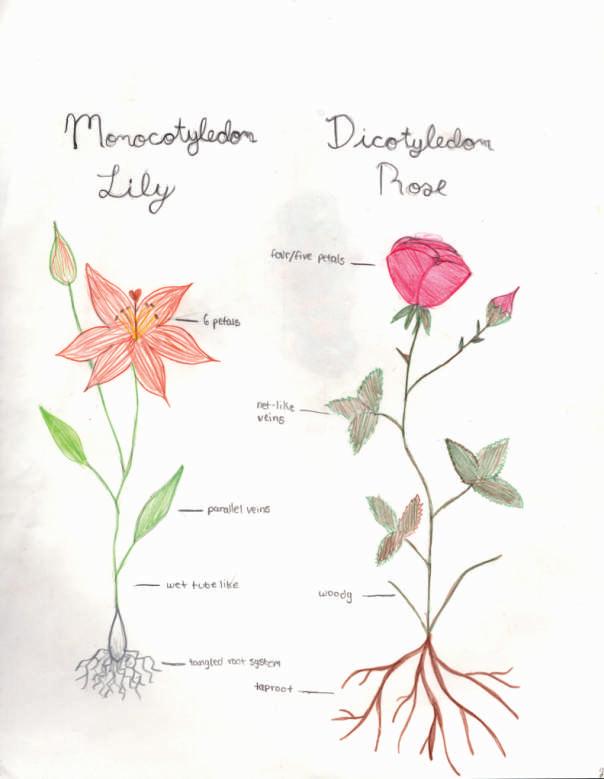 Monocotyledon
Lily
Dicotyledon
Rose
four/five petals
6 petals
net-like
veins
parallel veins
wet tube like
woody
tangled root system
taproot